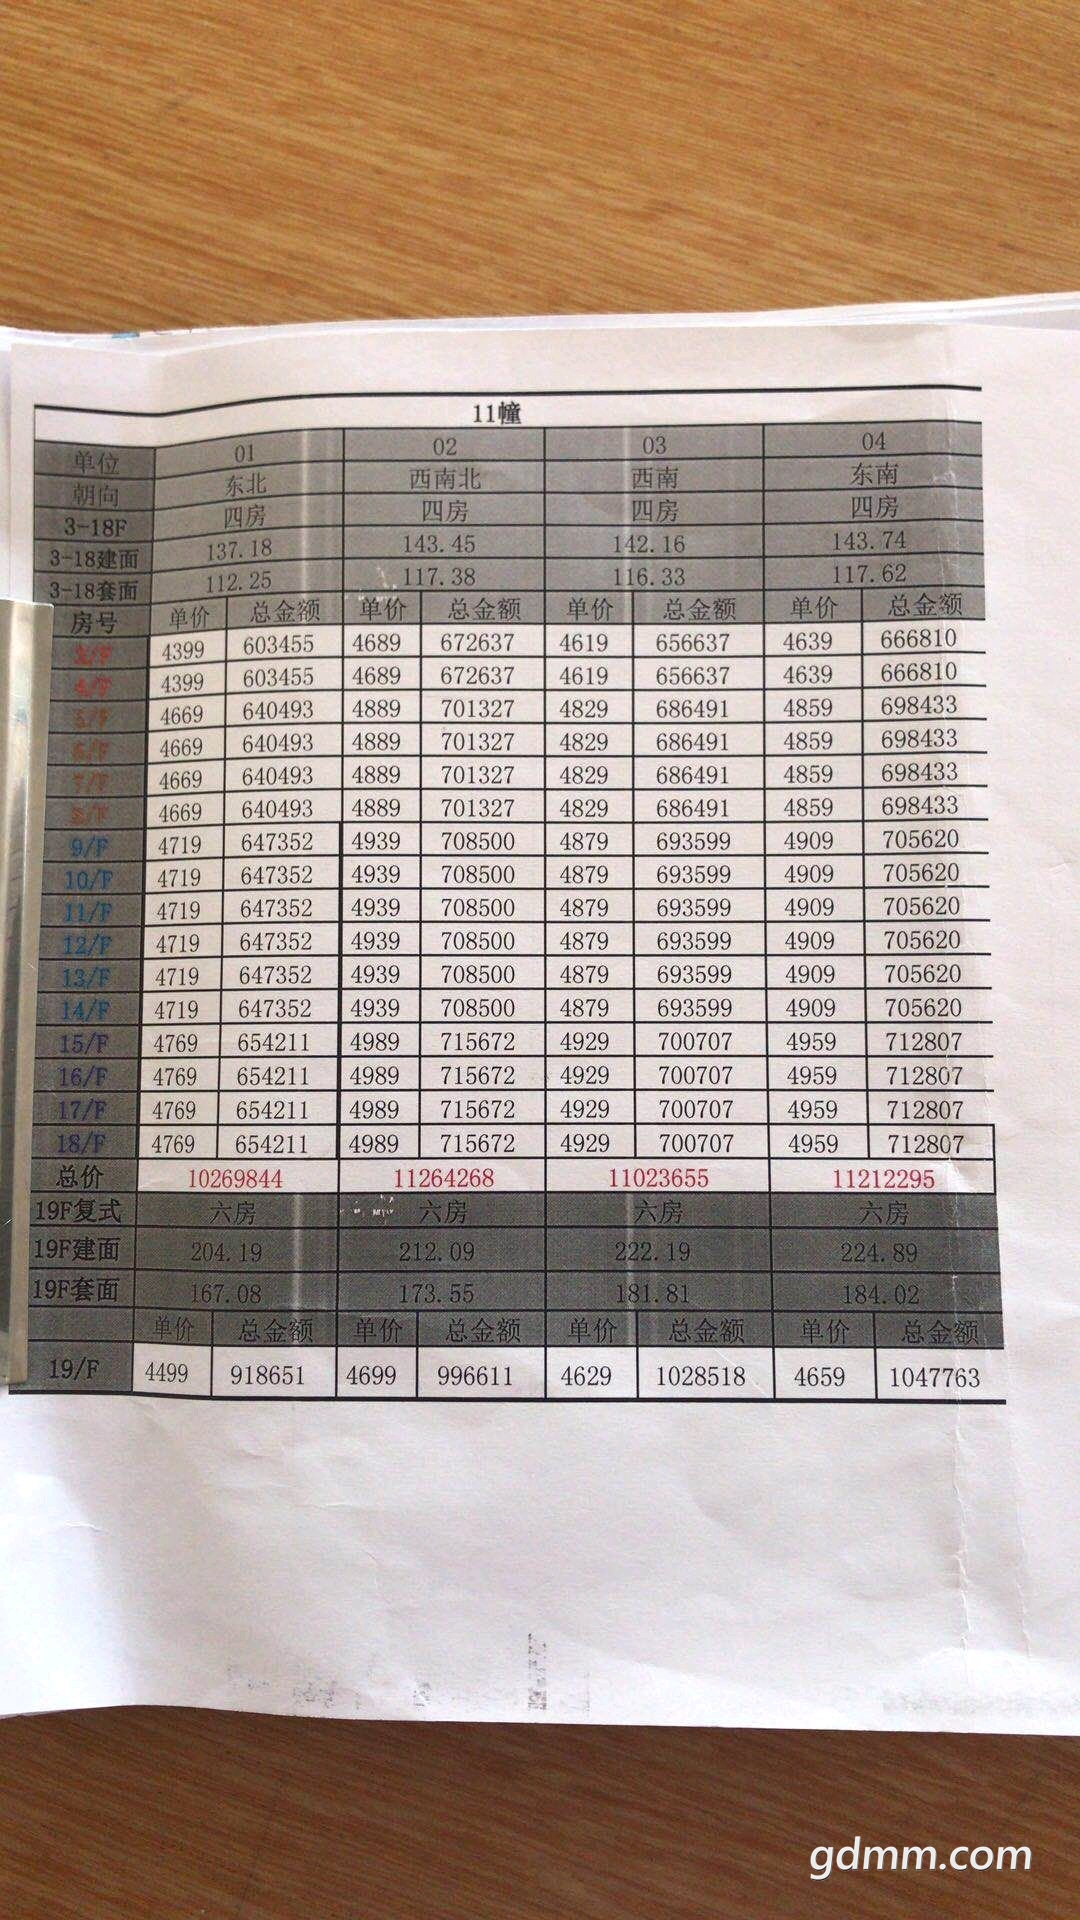 11幢
单位 01 02 03 04
朝向 东北 西南北 西南 东南
3-18F 四房 四房 四房 四房
3-18建面 137.18 143.45 142.16 143.74
3-18套面 112.25 117.38 116.33 117.62
房号 单价 总金额 单价 总金额 单价 总金额 单价 总金额
3/F 4399 603455 4689 672637 4619 656637 4639 666810
4/F 4399 603455 4689 672637 4619 656637 4639 666810
5/F 4669 640493 4889 701327 4829 686491 4859 698433
6/F 4669 640493 4889 701327 4829 686491 4859 698433
7/F 4669 640493 4889 701327 4829 686491 4859 698433
8/F 4669 640493 4889 701327 4829 686491 4859 698433
9/F 4719 647352 4939 708500 4879 693599 4909 705620
10/F 4719 647352 4939 708500 4879 693599 4909 705620
11/F 4719 647352 4939 708500 4879 693599 4909 705620
12/F 4719 647352 4939 708500 4879 693599 4909 705620
13/F 4719 647352 4939 708500 4879 693599 4909 705620
14/F 4719 647352 4939 708500 4879 693599 4909 705620
15/F 4769 654211 4989 715672 4929 700707 4959 712807
16/F 4769 654211 4989 715672 4929 700707 4959 712807
17/F 4769 654211 4989 715672 4929 700707 4959 712807
18/F 4769 654211 4989 715672 4929 700707 4959 712807
总价 10269844 11264268 11023655 11212295
19F复式 六房 六房 六房 六房
19F建面 204.19 212.09 222.19 224.89
19F套面 167.08 173.55 181.81 184.02
单价 总金额 单价 总金额 单价 总金额 单价 总金额
19/F 4499 918651 4699 996611 4629 1028518 4659 1047763
gdmm.com